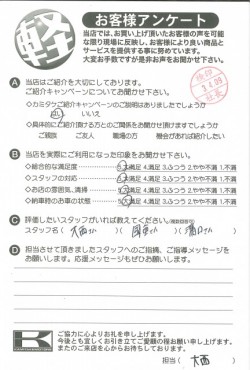 軽
お客様アンケート
当店では、お買い上げ頂いたお客様の声を可能
な限り現場に反映し、お客様により良い商品と
サービスを提供する事に努めています。
大変お手数ですが是非お声をお聞かせ下さい。
A 当店はご紹介を大切にしております。
ご紹介キャンペーンについてお聞かせ下さい。
◇カミタケご紹介キャンペーンのご説明はありましたでしょうか
はい いいえ
◇具体的にご紹介頂ける方とのご関係をお聞かせ頂けますでしょうか
ご親族 ご友人 職場の方 機会があれば紹介したい
B 当店を実際にご利用になった印象をお聞かせ下さい。
◇総合的な満足度 5.大満足 4.満足 3.ふつう 2.やや不満 1.不満
◇スタッフの対応 5.大満足 4.満足 3.ふつう 2.やや不満 1.不満
◇お店の雰囲気、清掃 5.大満足 4.満足 3.ふつう 2.やや不満 1.不満
◇納車時のお車の状態 5.大満足 4.満足 3.ふつう 2.やや不満 1.不満
C 評価したいスタッフがいれば教えてください。(複数回答可)
スタッフ名 ( 大西さん )( さん )( さん )
D 担当させて頂きましたスタッフへのご指摘、ご指導メッセージを
お願いします。応援メッセージもぜひお願いします。
K
ご協力に心よりお礼を申し上げます。
今後とも宜しくお引き立てご愛顧の程お願い申し上げます。
またのご来店を心からお待ちしております。
担当( 大西 )